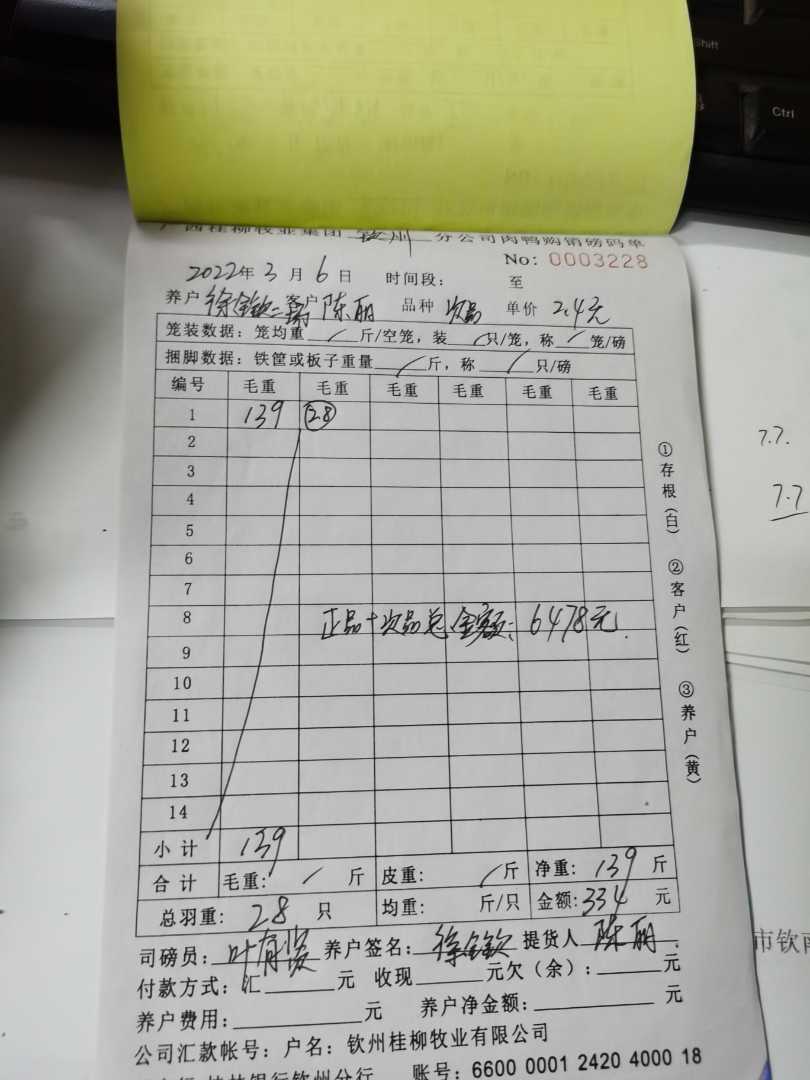 广西桂柳牧业集团 钦州 分公司肉鸭购销磅码单
No: 0003228
2022年 3 月 6 日 时间段: 至
养户 徐金钦二 客户 陈丽 品种 次品 单价 2.4元
笼装数据: 笼均重 / 斤/空笼, 装 / 只/笼, 称 / 笼/磅
捆脚数据: 铁筐或板子重量 / 斤, 称 / 只/磅
编号 毛重 毛重 毛重 毛重 毛重 毛重
1 139 28
2
3
4
5
6
7
8 正品+次品总金额: 6478元.
9
10
11
12
13
14
小计 139
合计 毛重: / 斤 皮重: / 斤 净重: 139 斤
总羽重: 28 只 均重: 斤/只 金额: 334 元
司磅员: 叶有 养户签名: 徐金钦 提货人 陈丽.
付款方式: 汇 元 收现 元欠(余): 元
养户费用: 元 养户净金额: 元
公司汇款帐号: 户名: 钦州桂柳牧业有限公司
桂林银行钦州分行 账号: 6600 0001 2420 4000 18
①存根(白) ②客户(红) ③养户(黄)
7.7.
7.7
市钦南
Shift
Ctrl